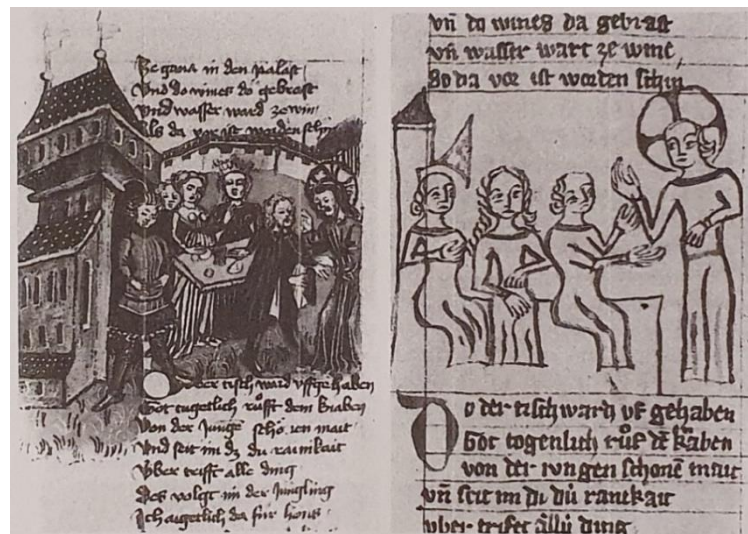 Ze gana in den palast
Vnd do wines do gebrast
Vnd wasser ward ze win
Als da vor ist worden schin
o der tisch ward vffgehaben
Got tugetlich rufft dem knaben
Von der Junge schönen mait
Vnd seit im dz du rainikait
Vber trifft alle ding
Des volgt im der Jungling
Ich
da für
vn̄ do wines da gebrast
vn̄ wasser wart ze wine
do da vor ist worden schin
Do der tisch wart vf gehaben
Got togenlich ruͦf dē knaben
von der iungen schonē
vn̄ seit im dú rainkait
vber trifet ällú ding